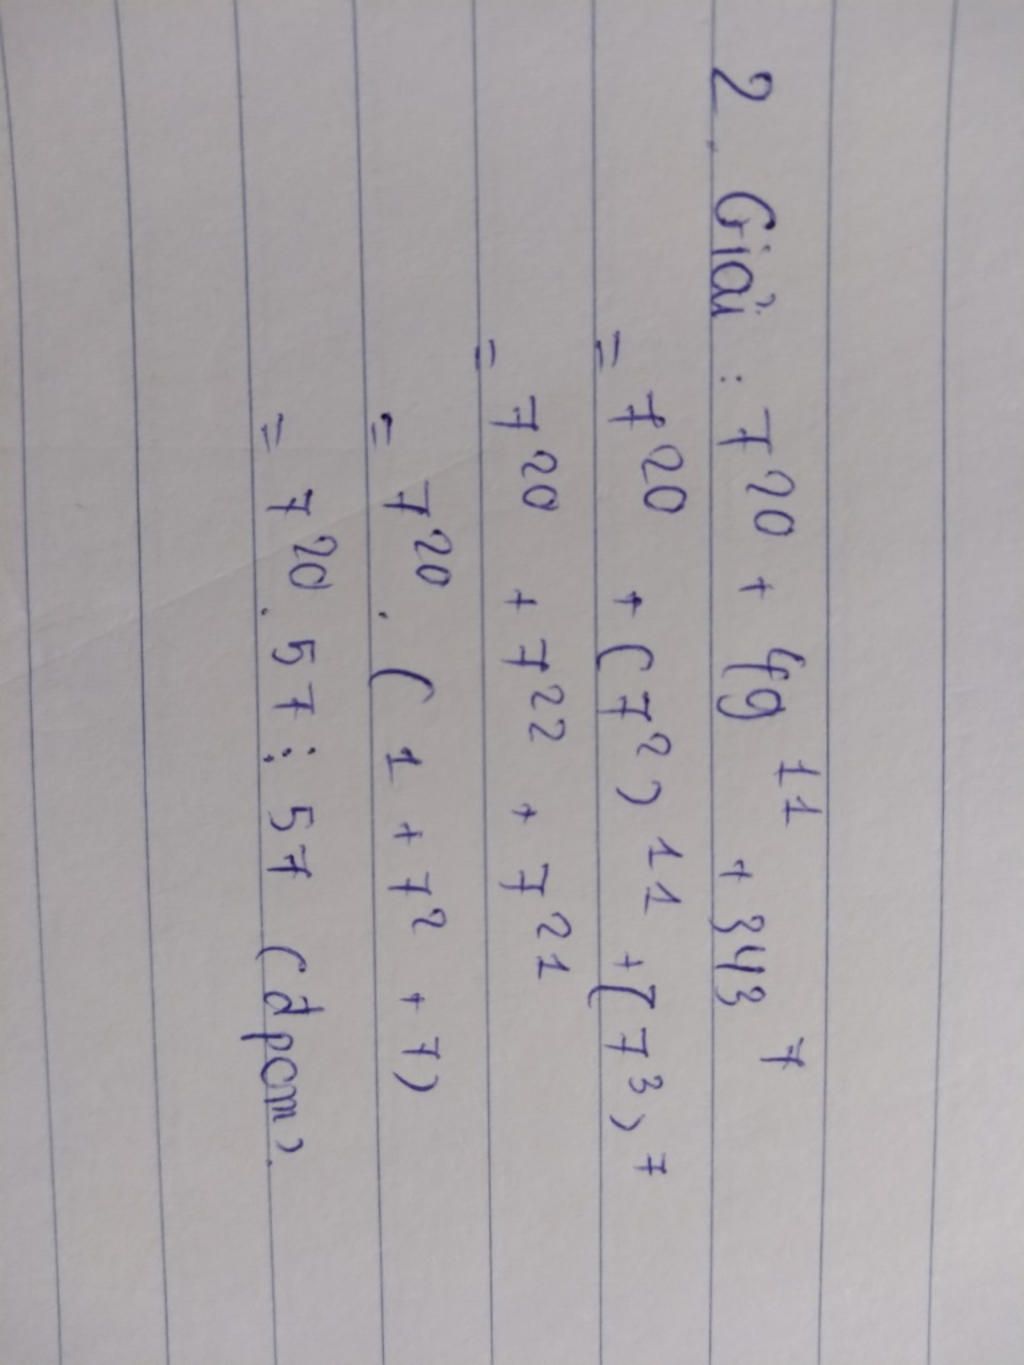 2. Giải : 7²⁰ + 49¹¹ + 343⁷
= 7²⁰ + (7²)¹¹ + (7³)⁷
= 7²⁰ + 7²² + 7²¹
= 7²⁰ . (1 + 7² + 7)
= 7²⁰ . 57 ⋮ 57 (đpcm).